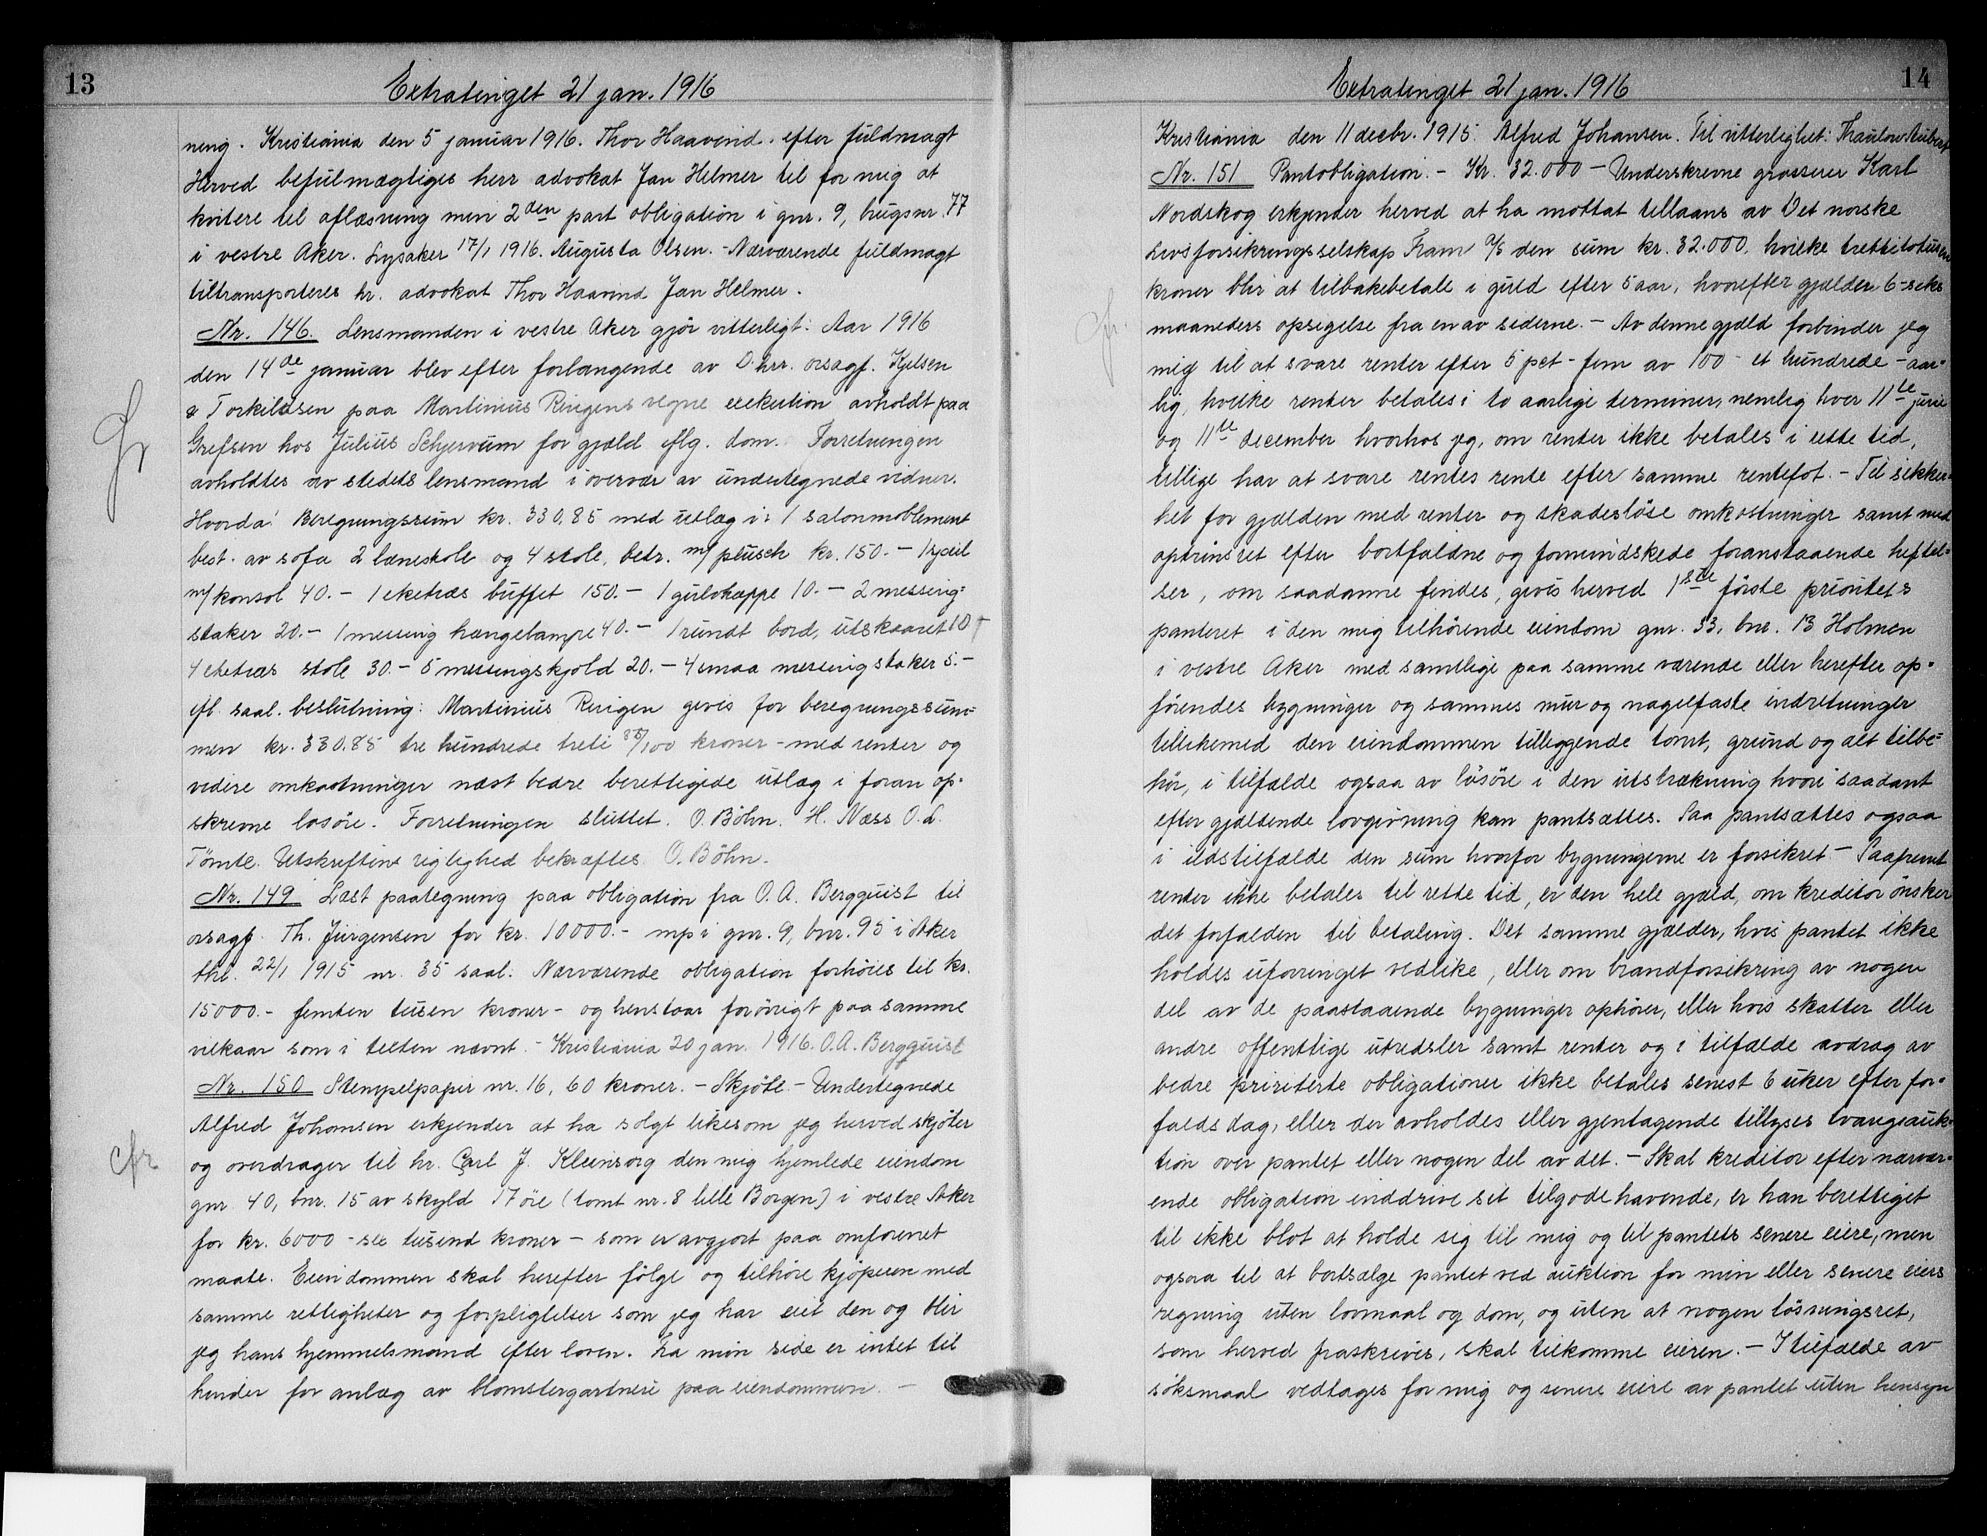 13
Extratinget 21 jan. 1916
ning. Kristiania den 5 januar 1916. Thor Haavind. efter fuldmagt
Herved befulmægtiges herr advokat Jan Helmer til for mig at
kvitere til aflæsning min 2den part obligation i gnr. 9, brugsnr. 77
i vestre Aker. Lysaker 17/1 1916. Augusta Olsen. - Nærværende fuldmagt
tiltransporteres hr. advokat Thor Haavind Jan Helmer.
Nr. 146. Lensmanden i vestre Aker gjør vitterligt: Aar 1916
den 14de januar blev efter forlangende av D'hrr. orsagf. Kjelsen
& Torkildsen paa Martinius Ringens vegne exekution avholdt paa
Grefsen hos Julius Schjervum for gjæld iflg. dom. Forretningen
avholdtes av stedets lensmand i overvær av undertegnede vidner.
Hvorda! Beregningssum kr. 330.85 med utlæg i: 1 salonmoblement
best. av sofa 2 lænestole og 4 stole, betr. m/ plusch kr. 150.- 1 speil
m/ konsol 40.- 1 eketræs buffet 150.- 1 gulvteppe 10.- 2 messing-
staker 20.- 1 messing hængelampe 40.- 1 rundt bord, utskaaret 10-
4 eketræs stole 30.- 5 messingskjold 20.- 4 smaa messingstaker 5.-
ifl. saal. beslutning: Martinius Ringen gives for beregningssum-
men kr. 330.85 tre hundrede treti 85/100 kroner - med renter og
videre omkostninger næst bedre berettigede utlæg i foran op-
skrevne løsøre. Forretningen sluttet. O. Bøhn. H. Næss O. L.
Tømte. Utskriftens rigtighed bekræftes O. Bøhn.
Nr. 149 Læst paategning paa obligation fra O. A. Bergquist til
orsagf. Th. Jürgensen for kr. 10000.- mp i gnr. 9, bnr. 95 i Aker
thl. 22/1 1915 nr. 35 saal. Nærværende obligation forhøies til kr.
15000.- femten tusen kroner - og henstaar forøvrigt paa samme
vilkaar som i teksten nævnt. - Kristiania 20 jan. 1916. O.A. Bergquist
Nr. 150 Stempelpapir nr. 16, 60 kroner. - Skjøte - Undertegnede
Alfred Johansen erkjender at ha solgt likesom jeg herved skjøter
og overdrager til hr. Carl J. Kleinsorg den mig hjemlede eiendom
gnr. 40, bnr. 15 av skyld 17 øre (tomt nr. 8 lille Borgen) i vestre Aker
for kr. 6000 - sex tusend kroner - som er avgjort paa omforenet
maate. Eiendommen skal herefter følge og tilhøre kjøperen med
samme rettigheter og forpligtelser som jeg har eiet den og blir
jeg hans hjemmelsmand efter loven. Fra min side er intet til
hinder for anlæg av blomstergartneri paa eiendommen. -
cfr
14
Extratinget 21 jan. 1916
Kristiania den 11 decbr. 1915. Alfred Johansen. Til vitterlighet: Thaulow Aubert
Nr. 151 Pantobligation. - Kr. 32.000 - Underskrevne grosserer Karl
Nordskog erkjender herved at ha mottat tillaans av Det norske
Livsforsikringsselskap Fram A/S den sum kr. 32.000. hvilke trettitotusen
kroner blir at tilbakebetale i guld efter 5 aar, hvorefter gjælder 6-seks
maaneders opsigelse fra en av siderne. - Av denne gjæld forbinder jeg
mig til at svare renter efter 5 pct - fem av 100 - et hundrede - aar-
lig, hvilke renter betales i to aarlige terminer, nemlig hver 11te juni
og 11te december hvorhos jeg, om renter ikke betales i rette tid,
tillige har at svare rentes rente efter samme rentefot. - Til sikker-
het for gjælden med renter og skadesløse omkostninger samt med
optrinsret efter bortfaldne og formindskede foranstaaende heftel-
ser, om saadanne findes, gives herved 1ste første prioritets
panteret i den mig tilhørende eiendom gnr. 33, bnr. 13 Holmen
i vestre Aker med samtlige paa samme værende eller herefter op-
førendes bygninger og sammes mur og nagelfaste indretninger
tillikemed den eiendommen tilliggende tomt, grund og alt tilbe-
hør, i tilfælde ogsaa av løsøre i den utstrækning hvori saadant
efter gjældende lovgivning kan pantsættes. Saa pantsættes ogsaa
i ildstilfælde den sum hvorfor bygningerne er forsikret - Saafremt
renter ikke betales til rette tid, er den hele gjæld, om kreditor ønsker
det forfalden til betaling. Det samme gjælder, hvis pantet ikke
holdes uforringet vedlike, eller om brandforsikring av nogen
del av de paastaaende bygninger ophører, eller hvis skatter eller
andre offentlige utredsler samt renter og i tilfælde avdrag av
bedre prioriterte obligationer ikke betales senest 6 uker efter for-
faldsdag, eller der avholdes eller gjentagende tillyses tvangsauk-
tion over pantet eller nogen del av det. - Skal kreditor efter nærvær-
ende obligation inddrive sit tilgodehavende, er han berettiget
til ikke blot at holde sig til mig og til pantets senere eiere, men
ogsaa til at bortsælge pantet ved auktion for min eller senere eiers
regning uten lovmaal og dom, og uten at nogen løsningsret,
som herved fraskrives, skal tilkomme eieren. - I tilfælde av
søksmaal vedtages for mig og senere eiere av pantet uten hensyn
cfr.